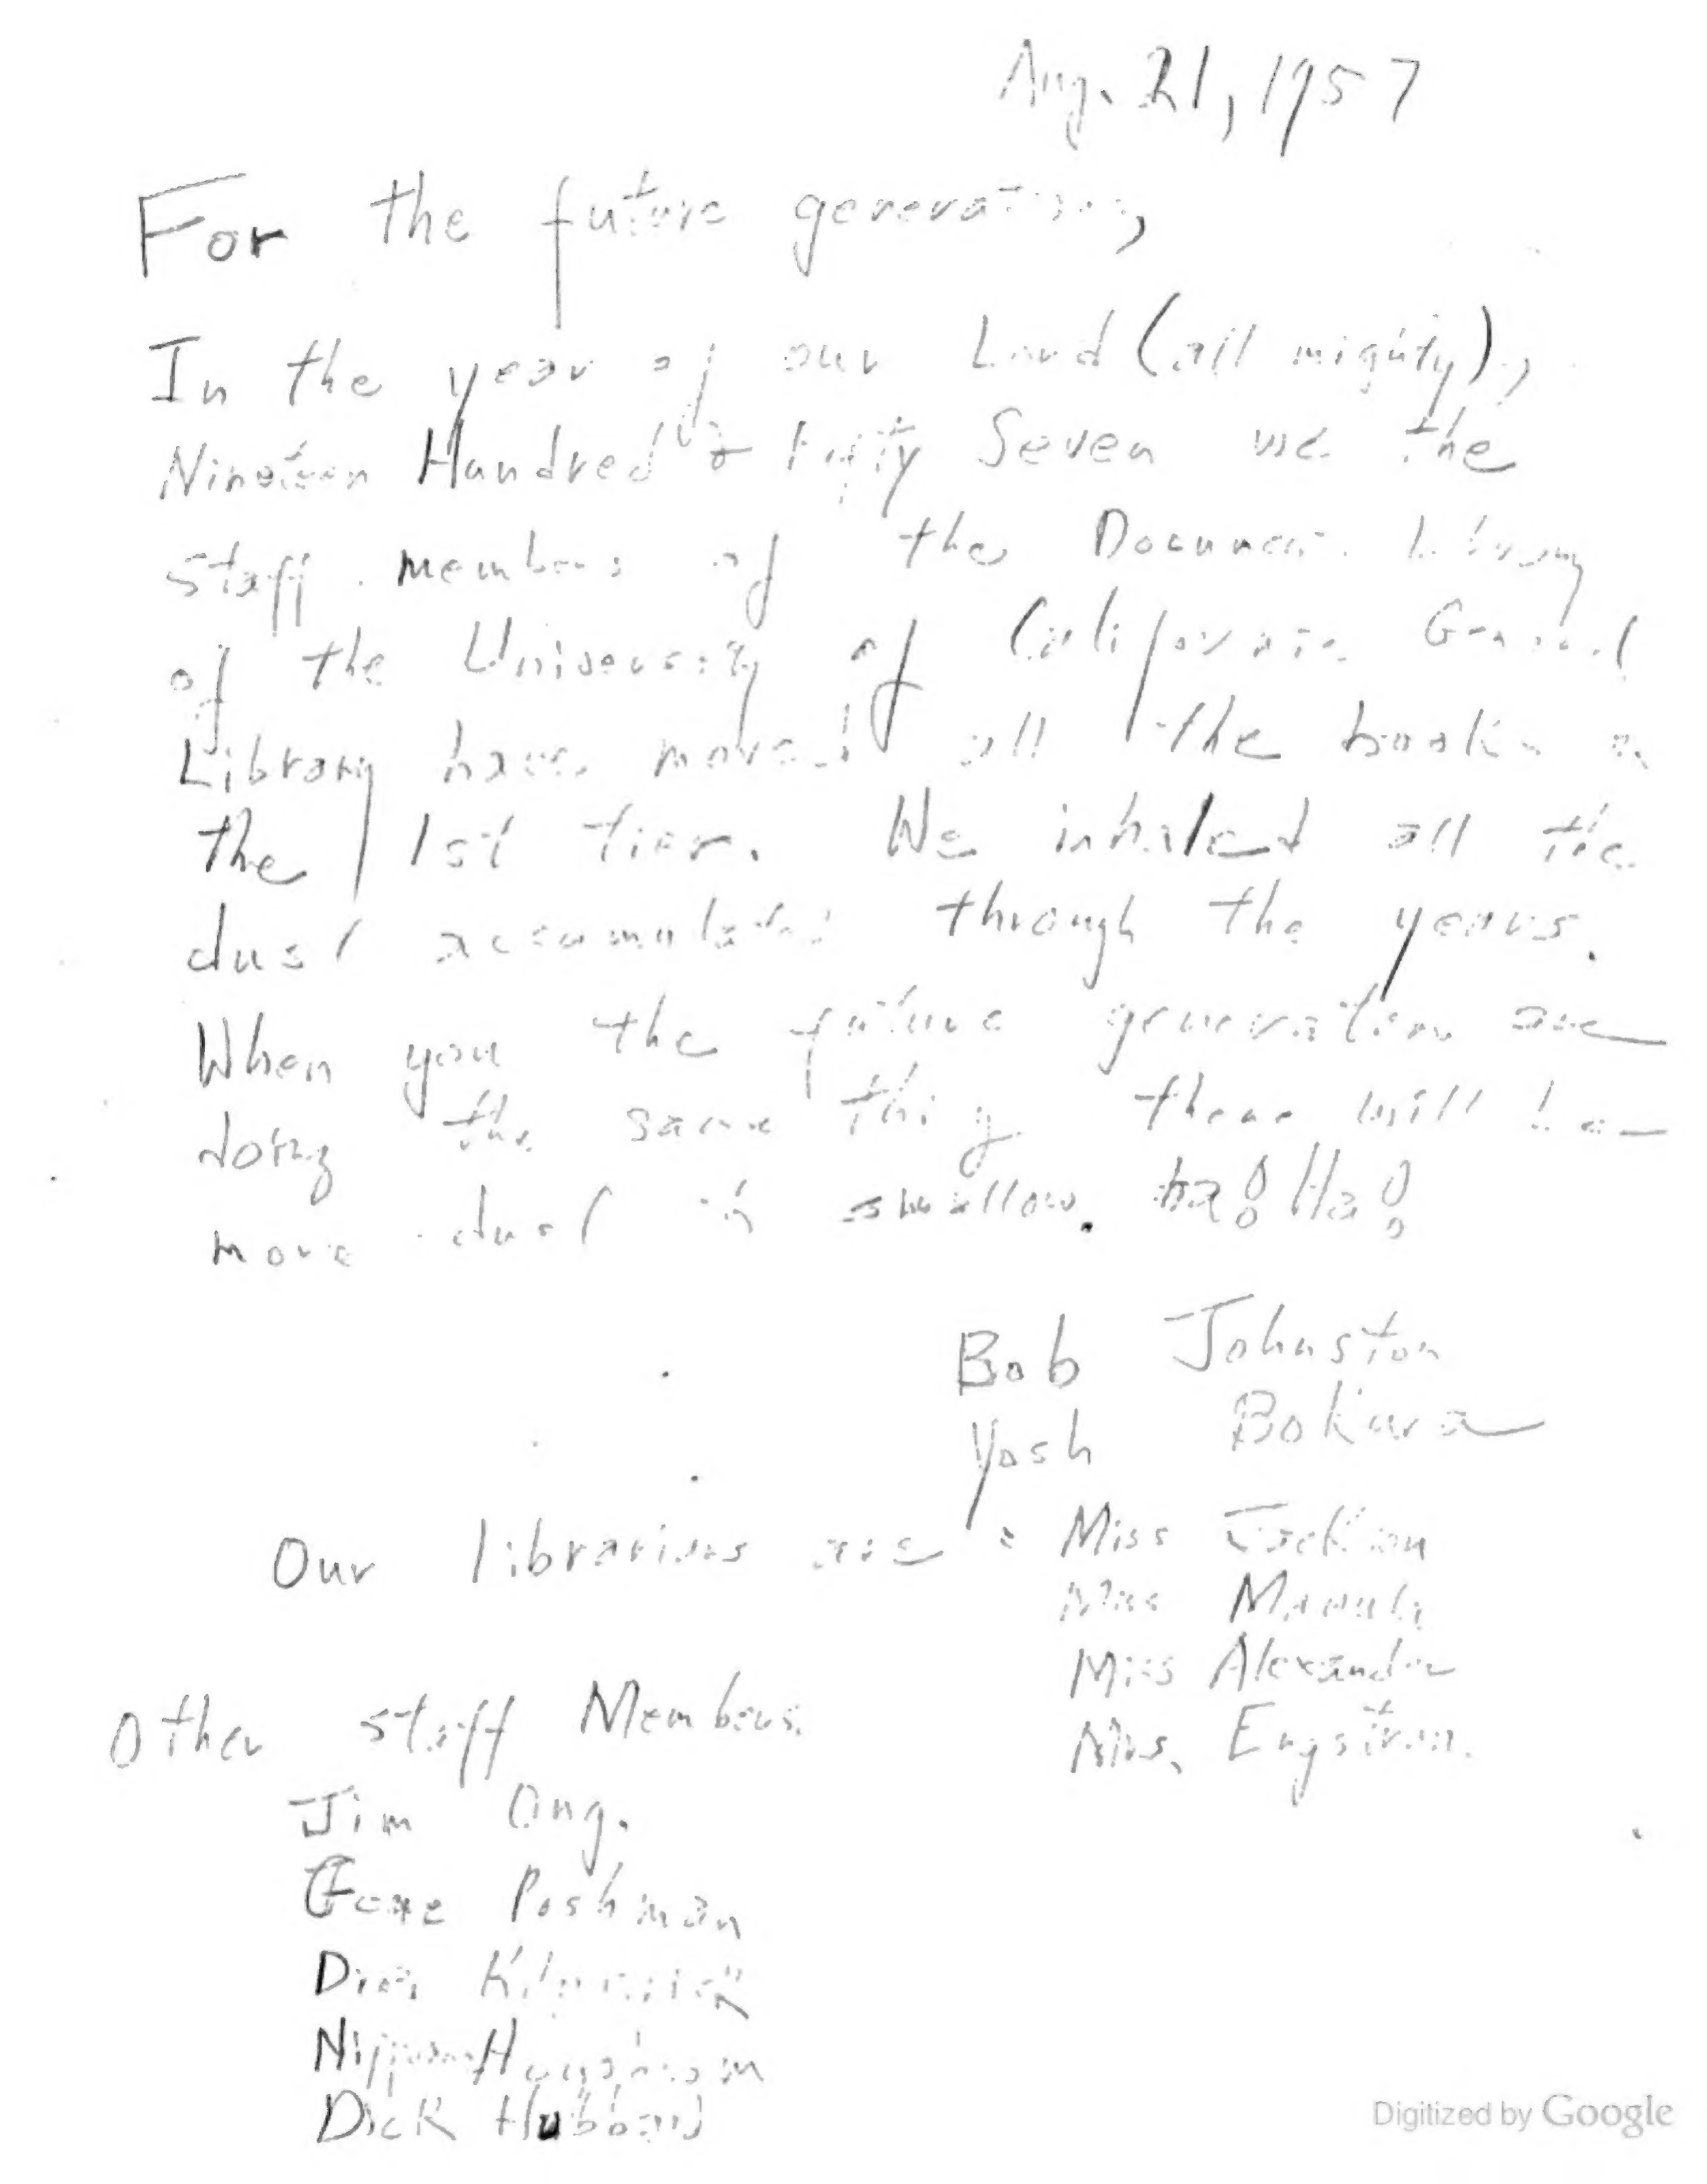 Aug. 21, 1957
For the future generations,
In the year of our Lord (all mighty),
Nineteen Hundred & Fifty Seven we the
staff members of the Document Library
of the University of California General
Library have moved all the books on
the 1st tier. We inhaled all the
dust accumulated through the years.
When you the future generation are
doing the same thing there will be
more dust to swallow. ha! Ha!
Bob Johnston
Yosh Bokura
Our librarians are : Miss Jackson
Miss Alexander
Mrs. Engstrom.
Other staff Members.
Jim Ong.
Gene Poshman
Dick Kilpatrick
Dick Hubbard
Digitized by Google